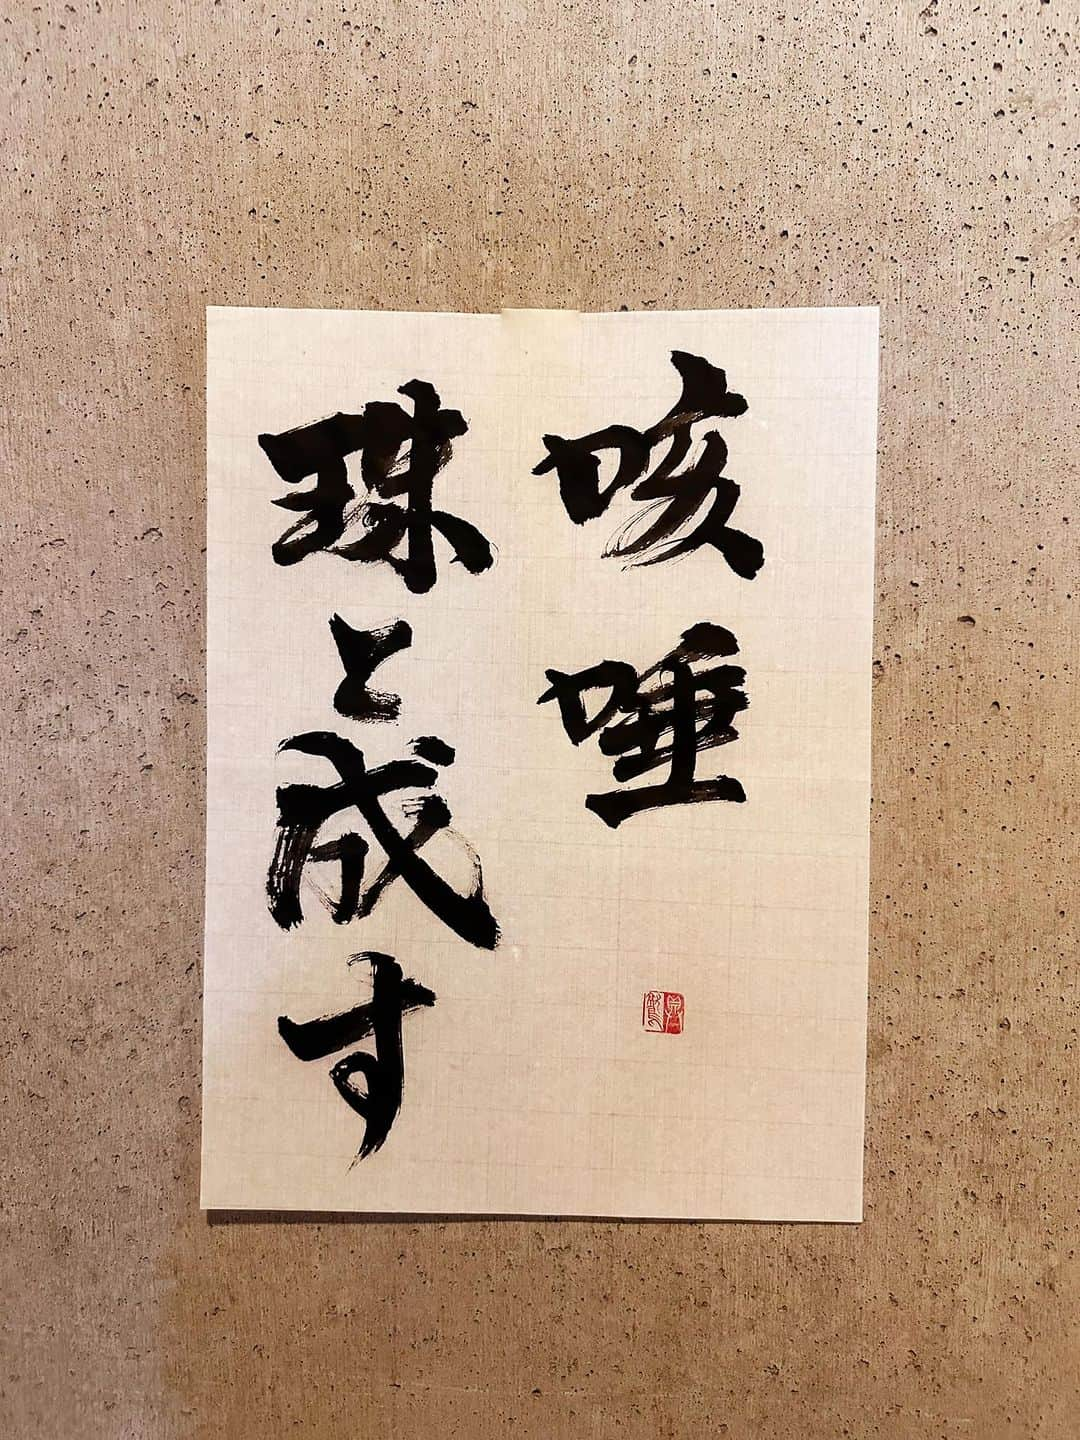 咳唾
珠と成す